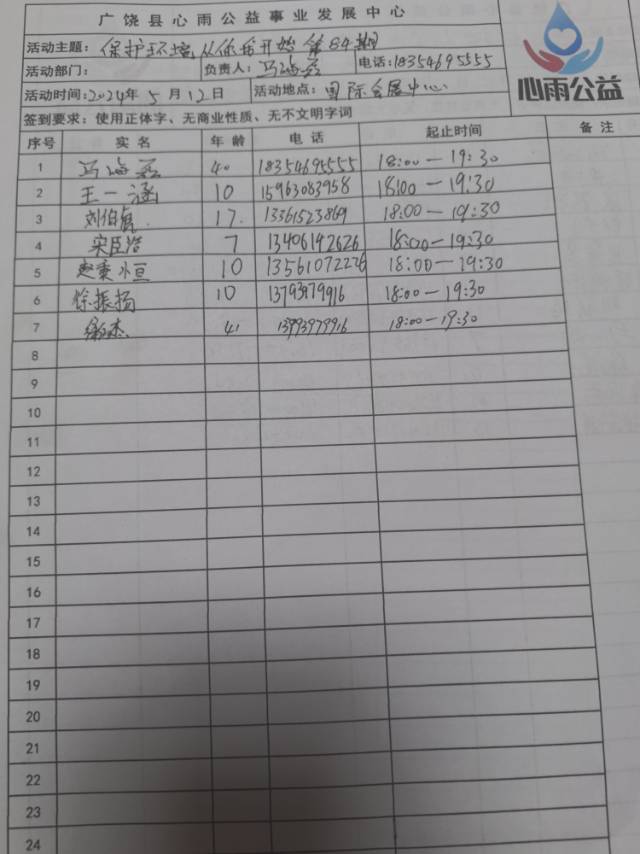 广饶县心雨公益事业发展中心
活动主题：保护环境从你我开始第84期
活动部门： 负责人：马海 电话：18354695555
活动时间：2024年5月12日 活动地点：国际会展中心
心雨公益
签到要求：使用正体字、无商业性质、无不文明字词
序号 实名 年龄 电话 起止时间 备注
1 马海 40 18354695555 18:00—19:30
2 王一涵 10 15963083958 18:00—19:30
3 刘伯 17 13361523869 18:00—19:30
4 宋臣浩 7 13406192626 18:00—19:30
5 赵秉恒 10 13561072276 18:00—19:30
6 徐振扬 10 13793979916 18:00—19:30
7 杰 41 13793979916 18:00—19:30
8
9
10
11
12
13
14
15
16
17
18
19
20
21
22
23
24